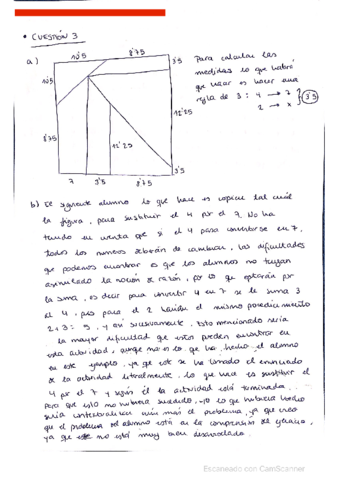 • CUESTIÓN 3
a)
10'5 8'75 3'5
10'5
12'25
8'75
12'25
3'5
7 3'5 8'75
Para calcular las
medidas lo que habrá
que hacer es hacer una
regla de 3: 4 → 7
2 → x 3'5
b) El siguiente alumno lo que hace es copiar tal cual
la figura, para sustituir el 4 por el 7. No ha
tenido en cuenta que si el 4 pasa convertirse en 7,
todos los números deberán de cambiar, las dificultades
que podemos encontrar es que los alumnos no tengan
asimilado la noción de razón, por lo que optarán por
la suma, es decir para convertir 4 en 7 se le suma 3
al 4, pues para el 2 harán el mismo procedimiento
2+3=5, y así sucesivamente. Esto mencionado sería
la mayor dificultad que estos pueden encontrar en
esta actividad, aunque no es lo que ha hecho el alumno
en este ejemplo, ya que este se ha tomado el enunciado
de la actividad literalmente, lo que hace es sustituir el
4 por el 7 y según él la actividad está terminada.
Para que esto no hubiera sucedido, yo lo que hubiera hecho
sería contextualizar aún más el problema, ya que creo
que el problema del alumno está en la comprensión del ejercicio,
ya que este no está muy bien desarrollado.
Escaneado con CamScanner